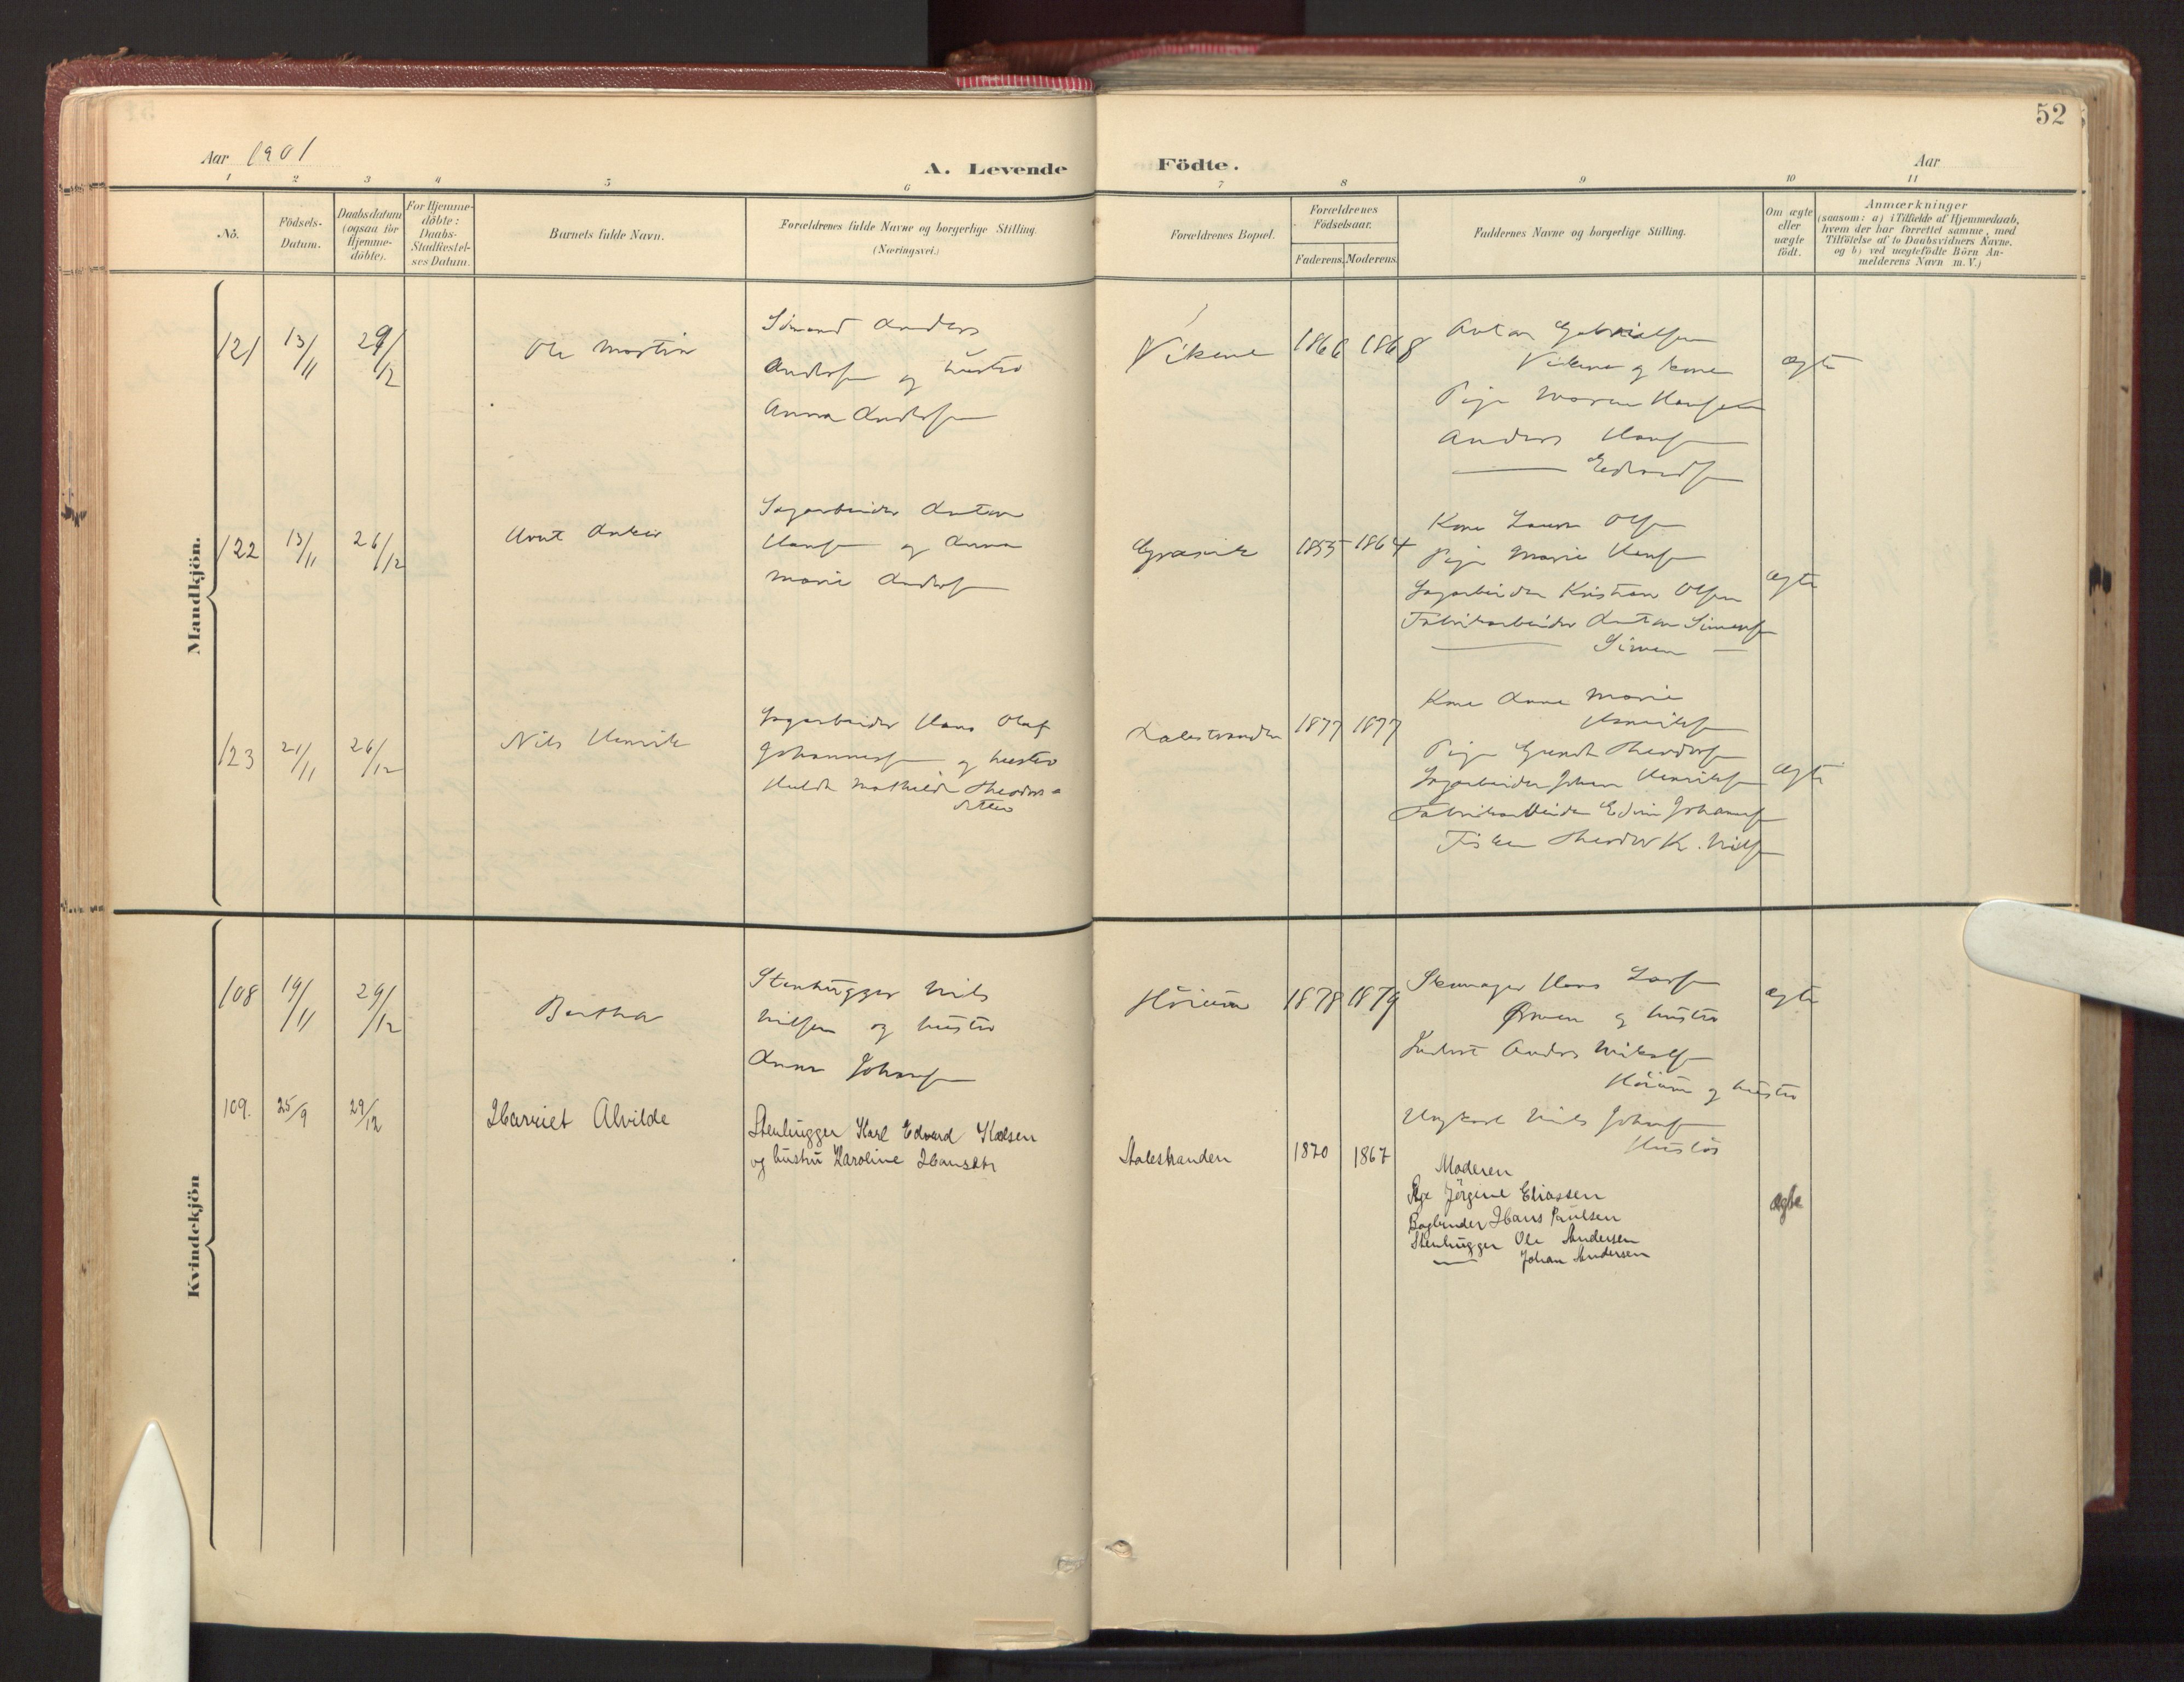 52
Aar 1901
A. Levende
Födte.
Aar
1 2 3 4 5 6 7 8 9 10 11
No.
Födsels-
Datum.
Daabsdatum
(ogsaa for
Hjemme-
döbte).
For Hjemme-
döbte:
Daabs-
Stadfæstel-
ses Datum.
Barnets fulde Navn.
Forældrenes fulde Navne og borgerlige Stilling.
(Næringsvei.)
Forældrenes Bopæl.
Forældrenes
Födselsaar.
Faderens.
Moderens.
Faddernes Navne og borgerlige Stilling.
Om ægte
eller
uægte
födt.
Anmærkninger
(saasom: a) i Tilfælde af Hjemmedaab,
hvem der har forrettet samme, med
Tilföielse af to Daabsvidners Navne,
og b) ved uægtefödte Börn An-
melderens Navn m. V.)
Mandkjön.
121 13/11 29/12
Ole Martin
Anders
Andersen og hustro
Anna Andersen
Vikene
1866 1868
Anton Gabrielsen
Vikene og kone
Pige Maren Hansen
Anders Hansen
— Edvardsen
ægte
122 13/11 26/12
Arnt Anker
Sagarbeider Anton
Hansen og Anna
Marie Andersen
Græsvik
1855 1864
Kone Laura Olsen
Pige Marie Hansen
Sagarbeider Kristian Olsen
Fabrikarbeider Anton Simensen
— Simen —
ægte
123 21/11 26/12
Nils Henrik
Sagarbeider Hans Olaf
Johannessen og hustro
Hulda Mathilde Theodors-
datter
1877 1877
Kone Anne Marie
Henriksen
Pige Theodorsen
Sagarbeider Johan Henriksen
Fabrikarbeider Edvin Johansen
Fisker Theodor K. Nilsen
ægte
Kvindekjön
108 19/11 29/12
Bertha
Stenhugger Nils
Nilsen og hustro
Anna Johansen
1878 1879
Skomager Hans Larsen
og hustro
Anders Mikalsen
og hustro
Ungkarl Nils Johansen
ægte
109. 25/9 29/12
Harriet Alvilde
Stenhugger Karl Edvard Karlsen
og hustru Karoline Hansdtr
Alaleshanden
1870 1867
Moderen
Pige Jörgine Eliassen
Bogbinder Hans Paulsen
Stenhugger Ole Andersen
— Johan Andersen
ægte